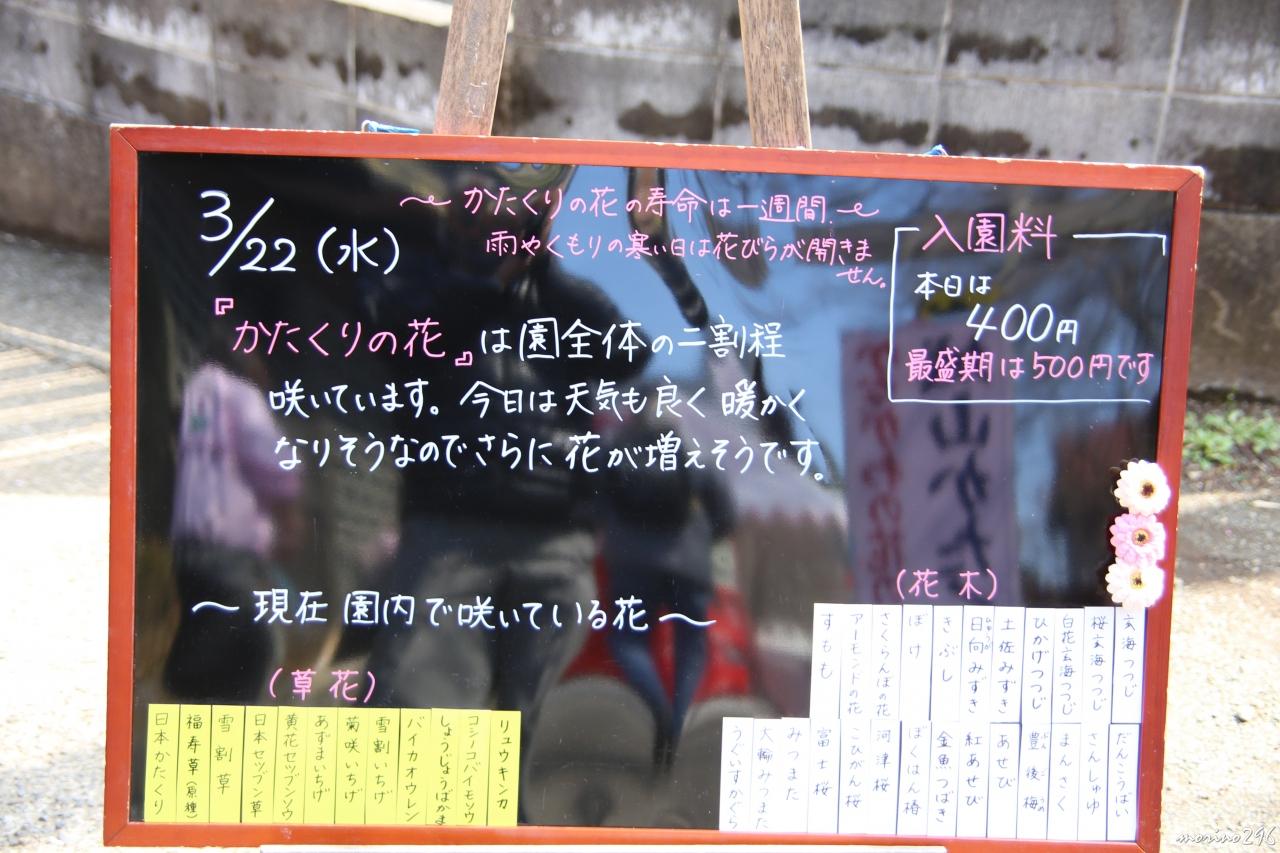 3/22(水)
～かたくりの花の寿命は一週間～
雨やくもりの寒い日は花びらが開きま
せん。
入園料
本日は
400円
最盛期は500円です
『かたくりの花』は園全体の二割程
咲いています。今日は天気も良く暖かく
なりそうなのでさらに花が増えそうです。
～現在園内で咲いている花～
(草花)
リュウキンカ
コシノコバイモソウ
しょうじょうばかま
バイカオウレン
雪割いちげ
菊咲いちげ
あずまいちげ
黄花セツブンソウ
日本セツブン草
雪割草
福寿草(原種)
日本かたくり
(花木)
玄海つつじ
桜玄海つつじ
白花玄海つつじ
ひかげつつじ
土佐みずき
日向みずき
ひゅうが
きぶし
ぼけ
さくらんぼの花
アーモンドの花
すもも
だんこうばい
さんしゅゆ
まんさく
豊後梅
ぶんごうめ
あせび
紅あせび
金魚つばき
ぼくはん椿
河津桜
こひがん桜
富士桜
みつまた
大輪みつまた
うぐいすかぐら
morino296